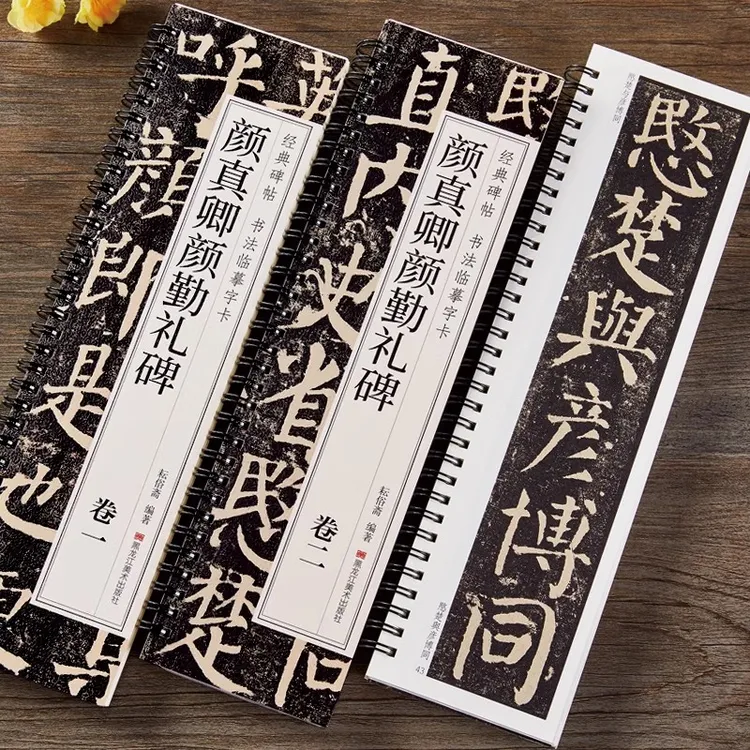 呼顔郎是也
经典碑帖 书法临摹字卡
颜真卿颜勤礼碑
卷一
耘俗斋 编著
黑龙江美术出版社
直内史省愍楚
愍
同
经典碑帖 书法临摹字卡
颜真卿颜勤礼碑
卷二
耘俗斋 编著
黑龙江美术出版社
愍楚与彦博同
愍楚與彦博同
愍楚與彦博同
43